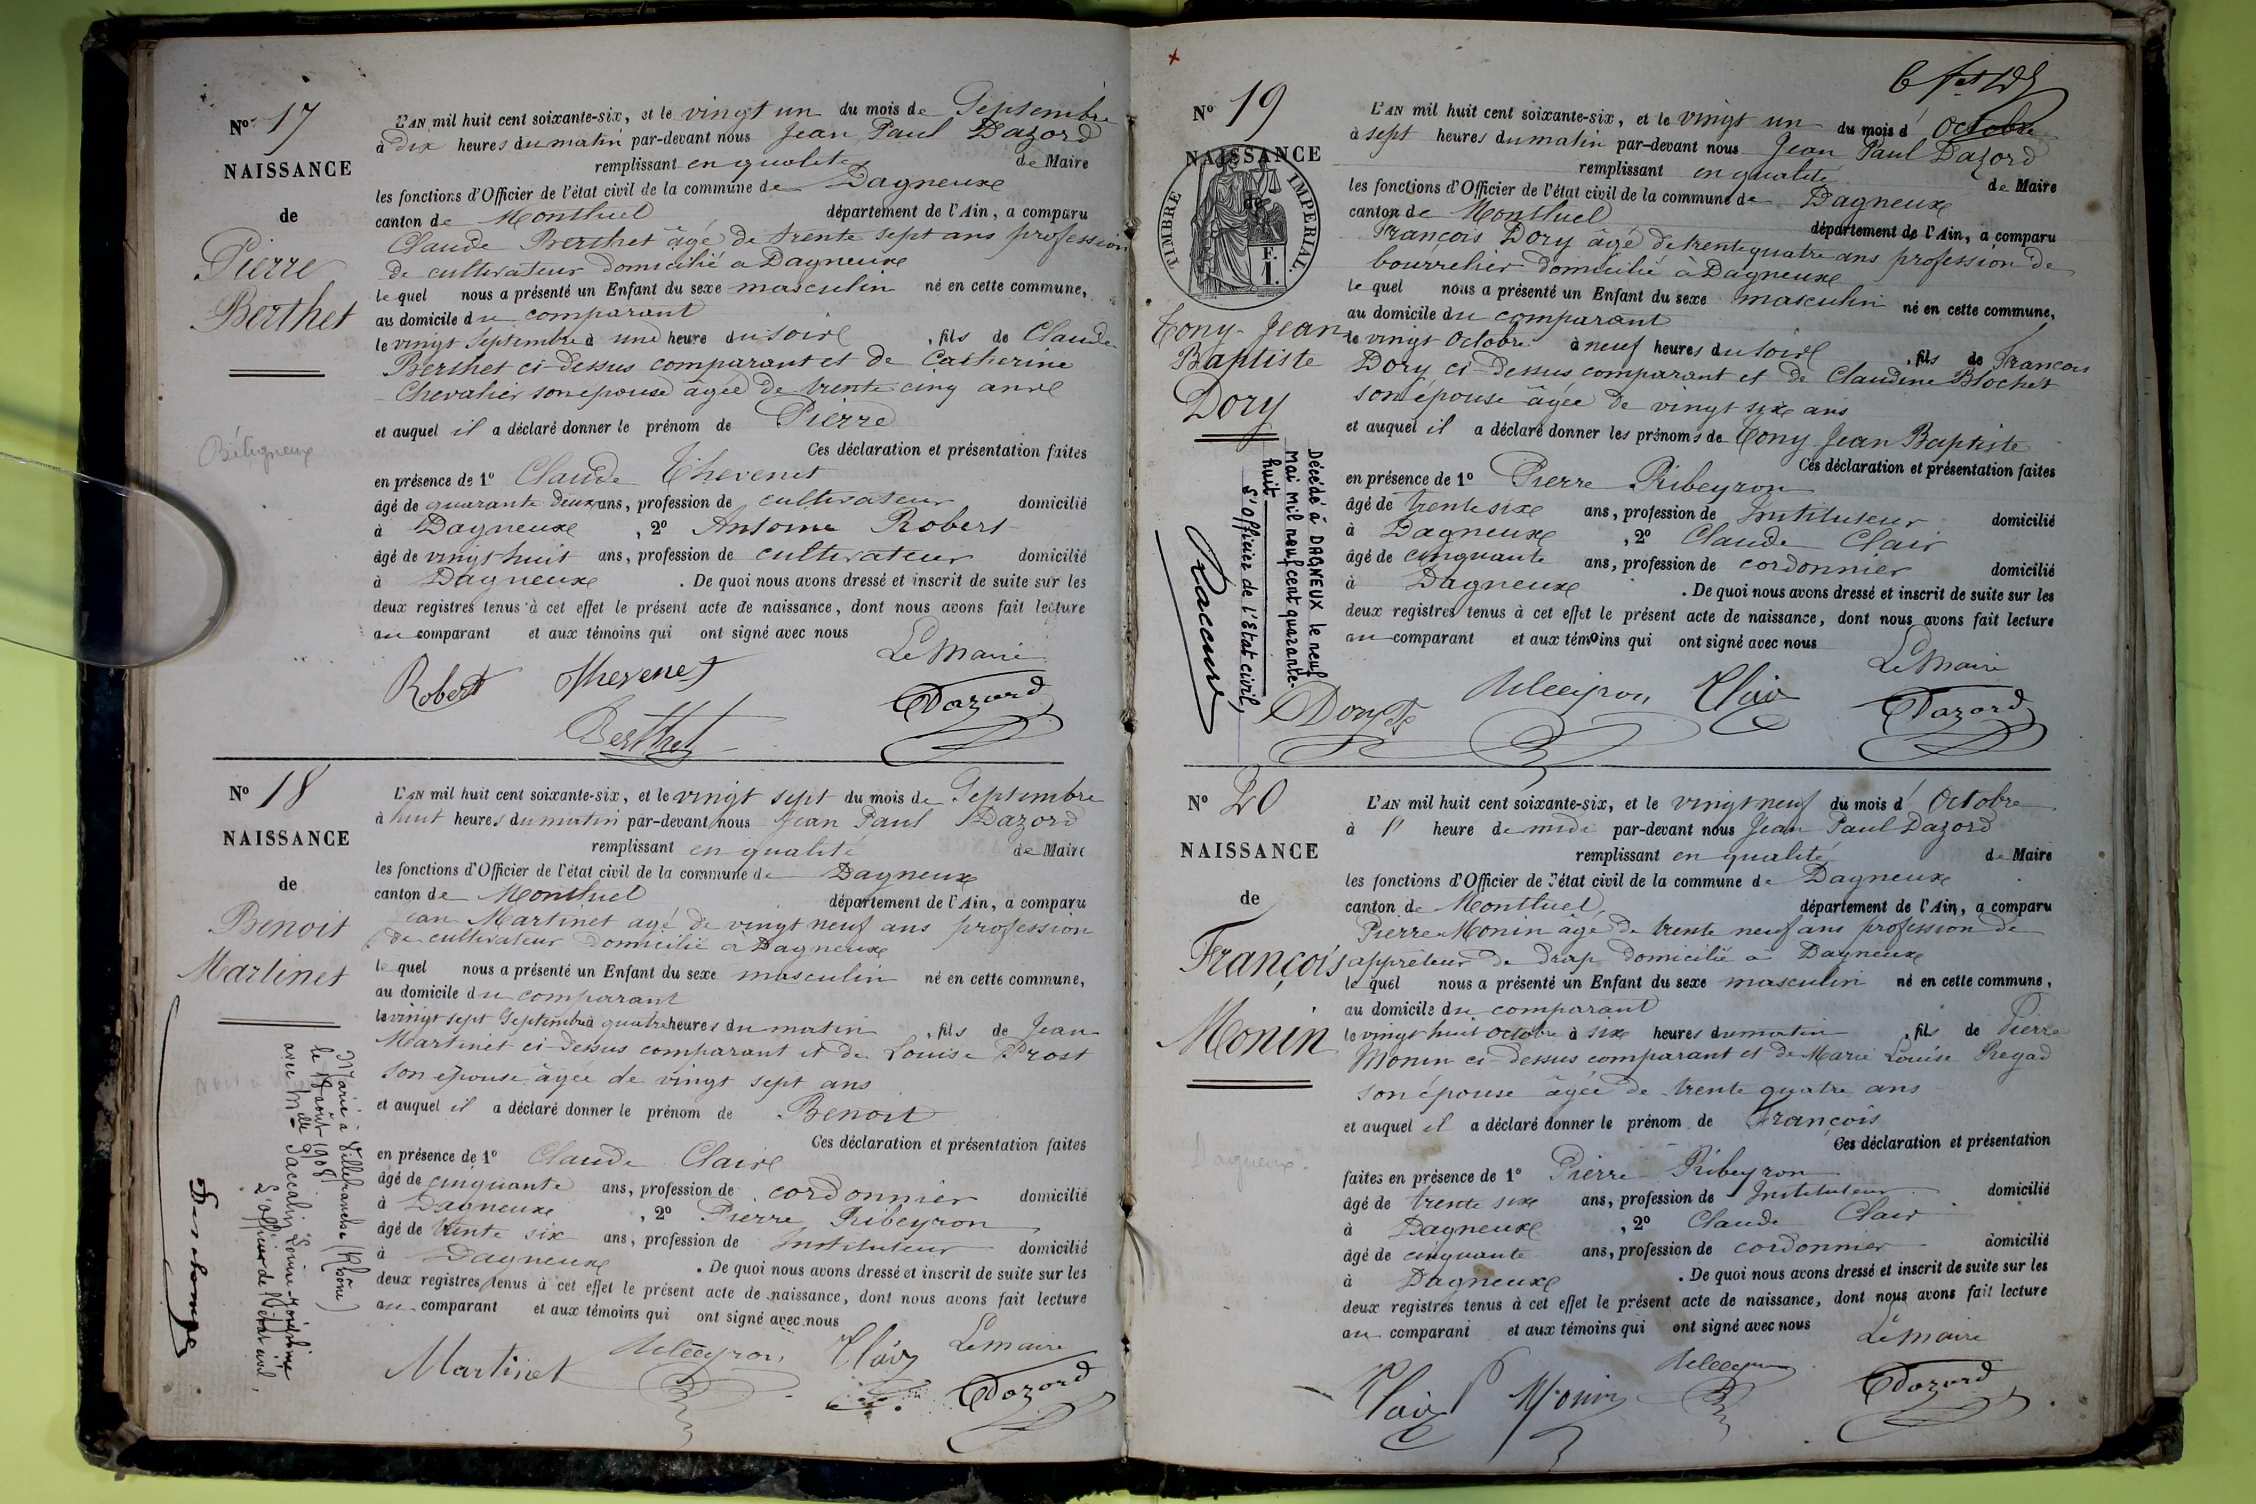 No 17
NAISSANCE
de
Pierre
Berthet
Béligneux
L'AN mil huit cent soixante-six, et le vingt un du mois de Septembre
à dix heures du matin par-devant nous Jean Paul Dazord
remplissant en qualité de Maire
les fonctions d'Officier de l'état civil de la commune de Dagneux
canton de Montluel département de l'Ain, a comparu
Claude Berthet âgé de trente sept ans profession
de cultivateur domicilié a Dagneux
le quel nous a présenté un Enfant du sexe masculin né en cette commune,
au domicile du comparant
le vingt Septembre à une heure du soir , fils de Claude
Berthet ci-dessus comparant et de Catherine
Chevalier son épouse âgée de trente cinq ans
et auquel il a déclaré donner le prénom de Pierre
Ces déclaration et présentation faites
en présence de 1º Claude Thevenet
âgé de quarante deux ans, profession de cultivateur domicilié
à Dagneux , 2º Antoine Robert
âgé de vingt huit ans, profession de cultivateur domicilié
à Dagneux . De quoi nous avons dressé et inscrit de suite sur les
deux registres tenus à cet effet le présent acte de naissance, dont nous avons fait lecture
au comparant et aux témoins qui ont signé avec nous
Le Maire
Robert Thevenet
Dazord
Berthet
No 18
NAISSANCE
de
Benoit
Martinet
Marié à Villefranche (Rhône)
août 1908
avec Mlle Jaccalin Louise-Joséphine
L'officier de l'état civil,
L'AN mil huit cent soixante-six, et le vingt sept du mois de Septembre
à huit heures du matin par-devant nous Jean Paul Dazord
remplissant en qualité de Maire
les fonctions d'Officier de l'état civil de la commune de Dagneux
canton de Montluel département de l'Ain, a comparu
Jean Martinet agé de vingt neuf ans profession
de cultivateur domicilié à Dagneux
le quel nous a présenté un Enfant du sexe masculin né en cette commune,
au domicile du comparant
le vingt sept Septembre à quatre heures du matin , fils de Jean
Martinet ci-dessus comparant et de Louise Prost
son épouse âgée de vingt sept ans
et auquel il a déclaré donner le prénom de Benoit
Ces déclaration et présentation faites
en présence de 1º Claude Clair
âgé de cinquante ans, profession de cordonnier domicilié
à Dagneux , 2º Pierre Ribeyron
âgé de trente six ans, profession de Instituteur domicilié
à Dagneux . De quoi nous avons dressé et inscrit de suite sur les
deux registres tenus à cet effet le présent acte de naissance, dont nous avons fait lecture
au comparant et aux témoins qui ont signé avec nous
Le maire
Martinet Ribeyron Clair
Dazord
No 19
NAISSANCE
de
TIMBRE IMPERIAL
F.
1.
Tony-Jean
Baptiste
Dory
Décédé à DAGNEUX le neuf
Mai mil neuf cent quarante-
huit
L'Officier de l'Etat civil,
L'AN mil huit cent soixante-six, et le vingt un du mois d' Octobre
à sept heures du matin par-devant nous Jean Paul Dazord
remplissant en qualité de Maire
les fonctions d'Officier de l'état civil de la commune de Dagneux
canton de Montluel département de l'Ain, a comparu
François Dory âgé de trente quatre ans profession de
bourrelier domicilié à Dagneux
le quel nous a présenté un Enfant du sexe masculin né en cette commune,
au domicile du comparant
le vingt Octobre à neuf heures du soir , fils de François
Dory ci-dessus comparant et de Claudine Blochet
son épouse âgée de vingt six ans
et auquel il a déclaré donner les prénoms de Tony Jean Baptiste
Ces déclaration et présentation faites
en présence de 1º Pierre Ribeyron
âgé de trente six ans, profession de Instituteur domicilié
à Dagneux , 2º Claude Clair
âgé de cinquante ans, profession de cordonnier domicilié
à Dagneux . De quoi nous avons dressé et inscrit de suite sur les
deux registres tenus à cet effet le présent acte de naissance, dont nous avons fait lecture
au comparant et aux témoins qui ont signé avec nous
Le Maire
Dory Ribeyron Clair
Dazord
No 20
NAISSANCE
de
François
Monin
Dagneux
L'AN mil huit cent soixante-six, et le vingt neuf du mois d' Octobre
à heure de midi par-devant nous Jean Paul Dazord
remplissant en qualité de Maire
les fonctions d'Officier de l'état civil de la commune de Dagneux
canton de Montluel département de l'Ain, a comparu
Pierre Monin âgé de trente neuf ans profession de
apprêteur de drap domicilié à Dagneux
le quel nous a présenté un Enfant du sexe masculin né en cette commune,
au domicile du comparant
le vingt huit Octobre à six heures du matin , fils de Pierre
Monin ci-dessus comparant et de Marie Louise Regad
son épouse âgée de trente quatre ans
et auquel il a déclaré donner le prénom de François
Ces déclaration et présentation
faites en présence de 1º Pierre Ribeyron
âgé de trente six ans, profession de Instituteur domicilié
à Dagneux , 2º Claude Clair
âgé de cinquante ans, profession de cordonnier domicilié
à Dagneux . De quoi nous avons dressé et inscrit de suite sur les
deux registres tenus à cet effet le présent acte de naissance, dont nous avons fait lecture
au comparant et aux témoins qui ont signé avec nous
Le maire
Clair Monin Ribeyron
Dazord